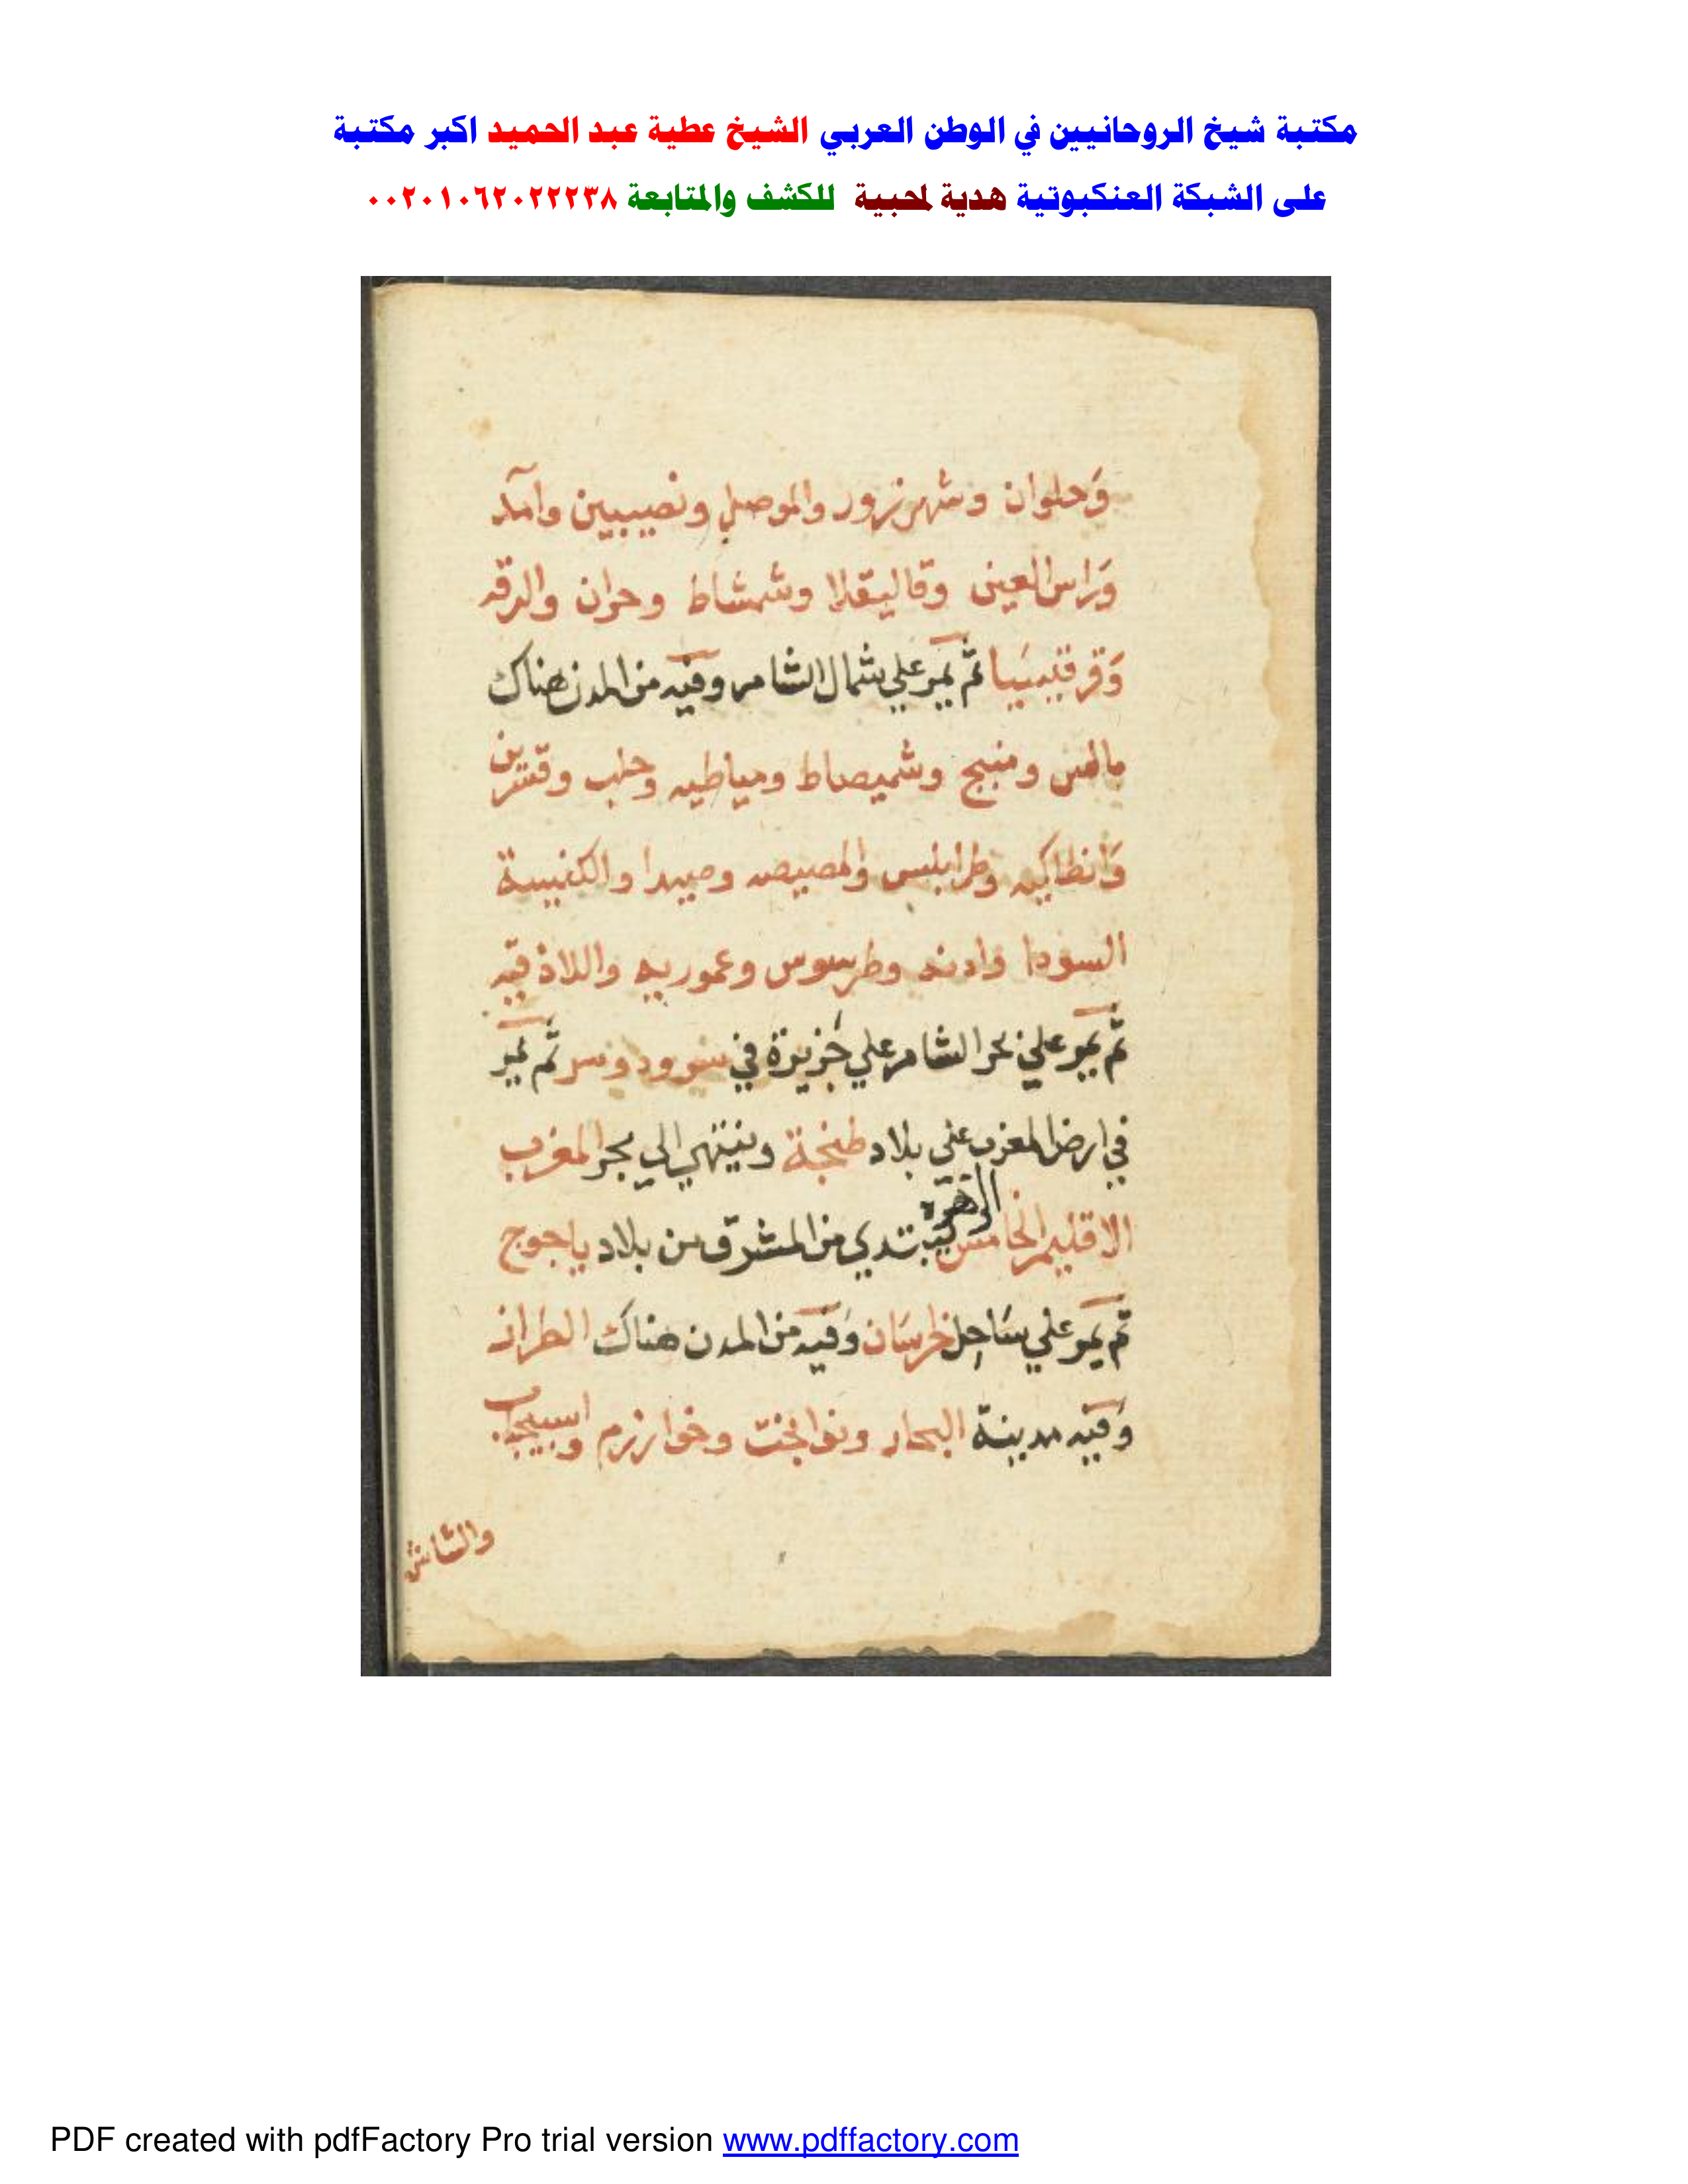 مكتبة شيخ الروحانيين في الوطن العربي الشيخ عطية عبد الحميد اكبر مكتبة
على الشبكة العنكبوتية هدية لمحبية للكشف والمتابعة ٠٠٢٠١٠٦٢٠٢٢٢٣٨
وَحلوان وشهرزور والموصلي ونصيبين وآمد
وَراس العين وقاليقلا وشمشاط وحران والرقه
وَقرقيسَيا ثم يمر علي شمال الشام وفيه من المدن هناك
بالس ومنبج وشميصاط ومياطيه وحلب وقنسرين
وَانطاكيه وطرابلس والمصيصه وصيدا والكنيسة
السودا وادنه وطرسوس وعموريه واللاذقيه
ثم يمر علي بحر الشام علي جزيرة في ثم يمر
في ارض المغرب علي بلاد طنجة وينتهي الي بحر المغرب
الاقليم الخامس الزهره يبتدي من المشرق من بلاد ياجوج
ثم يمر علي ساحل خرسان وفيه من المدن هناك الطراز
وَفيه مدينة البحار وخوارزم واسبيجاب
والشاش
PDF created with pdfFactory Pro trial version www.pdffactory.com